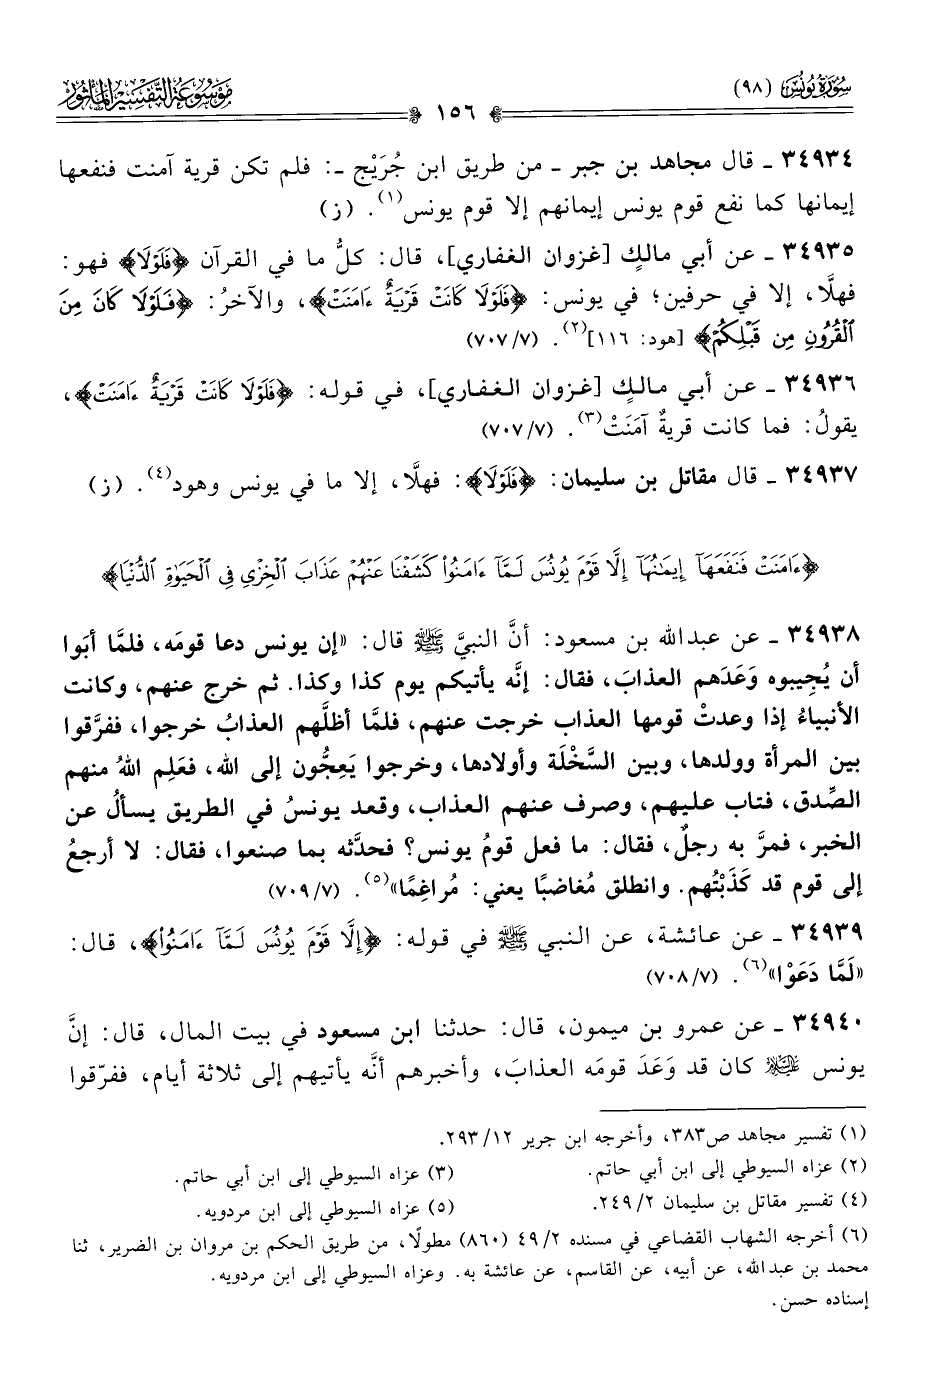 سُورَةُ يُونُسَ (٩٨)
١٥٦
مَوْسُوعَةُ التَّفْسِيرِ المَأْثُور
٣٤٩٣٤ ـ قال مجاهد بن جبر ـ من طريق ابن جُرَيْج ـ: فلم تكن قرية آمنت فنفعها
إيمانها كما نفع قوم يونس إيمانهم إلا قوم يونس(١). (ز)
٣٤٩٣٥ ـ عن أبي مالكٍ [غزوان الغفاري]، قال: كلُّ ما في القرآن ﴿فَلَوْلَا﴾ فهو:
فهلَّا، إلا في حرفين؛ في يونس: ﴿فَلَوْلَا كَانَتْ قَرْيَةٌ ءَامَنَتْ﴾، والآخرُ: ﴿فَلَوْلَا كَانَ مِنَ
ٱلْقُرُونِ مِن قَبْلِكُمْ﴾ [هود: ١١٦](٢). (٧٠٧/٧)
٣٤٩٣٦ ـ عن أبي مالكٍ [غزوان الغفاري]، في قوله: ﴿فَلَوْلَا كَانَتْ قَرْيَةٌ ءَامَنَتْ﴾،
يقولُ: فما كانت قريةٌ آمَنَتْ(٣). (٧٠٧/٧)
٣٤٩٣٧ ـ قال مقاتل بن سليمان: ﴿فَلَوْلَا﴾: فهلَّا، إلا ما في يونس وهود(٤). (ز)
﴿ءَامَنَتْ فَنَفَعَهَآ إِيمَٰنُهَآ إِلَّا قَوْمَ يُونُسَ لَمَّآ ءَامَنُوا۟ كَشَفْنَا عَنْهُمْ عَذَابَ ٱلْخِزْىِ فِى ٱلْحَيَوٰةِ ٱلدُّنْيَا﴾
٣٤٩٣٨ ـ عن عبدالله بن مسعود: أنَّ النبيَّ ﷺ قال: «إن يونس دعا قومَه، فلمَّا أبَوا
أن يُجِيبوه وَعَدَهم العذابَ، فقال: إنَّه يأتيكم يوم كذا وكذا. ثم خرج عنهم، وكانت
الأنبياءُ إذا وعدتْ قومها العذاب خرجت عنهم، فلمَّا أظلَّهم العذابُ خرجوا، ففرَّقوا
بين المرأة وولدها، وبين السَّخْلَة وأولادها، وخرجوا يَعِجُّون إلى الله، فعَلِم اللهُ منهم
الصِّدق، فتاب عليهم، وصرف عنهم العذاب، وقعد يونسُ في الطريق يسألُ عن
الخبر، فمرَّ به رجلٌ، فقال: ما فعل قومُ يونس؟ فحدَّثه بما صنعوا، فقال: لا أرجعُ
إلى قوم قد كَذَبْتُهم. وانطلق مُغاضبًا يعني: مُراغِمًا»(٥). (٧٠٩/٧)
٣٤٩٣٩ ـ عن عائشة، عن النبي ﷺ في قوله: ﴿إِلَّا قَوْمَ يُونُسَ لَمَّآ ءَامَنُوا۟﴾، قال:
«لَمَّا دَعَوْا»(٦). (٧٠٨/٧)
٣٤٩٤٠ ـ عن عمرو بن ميمون، قال: حدثنا ابن مسعود في بيت المال، قال: إنَّ
يونس عليه السلام كان قد وَعَدَ قومَه العذابَ، وأخبرهم أنَّه يأتيهم إلى ثلاثة أيام، ففرّقوا
(١) تفسير مجاهد ص٣٨٣، وأخرجه ابن جرير ٢٩٣/١٢.
(٢) عزاه السيوطي إلى ابن أبي حاتم. (٣) عزاه السيوطي إلى ابن أبي حاتم.
(٤) تفسير مقاتل بن سليمان ٢٤٩/٢. (٥) عزاه السيوطي إلى ابن مردويه.
(٦) أخرجه الشهاب القضاعي في مسنده ٤٩/٢ (٨٦٠) مطولًا، من طريق الحكم بن مروان بن الضرير، ثنا
محمد بن عبدالله، عن أبيه، عن القاسم، عن عائشة به. وعزاه السيوطي إلى ابن مردويه.
إسناده حسن.